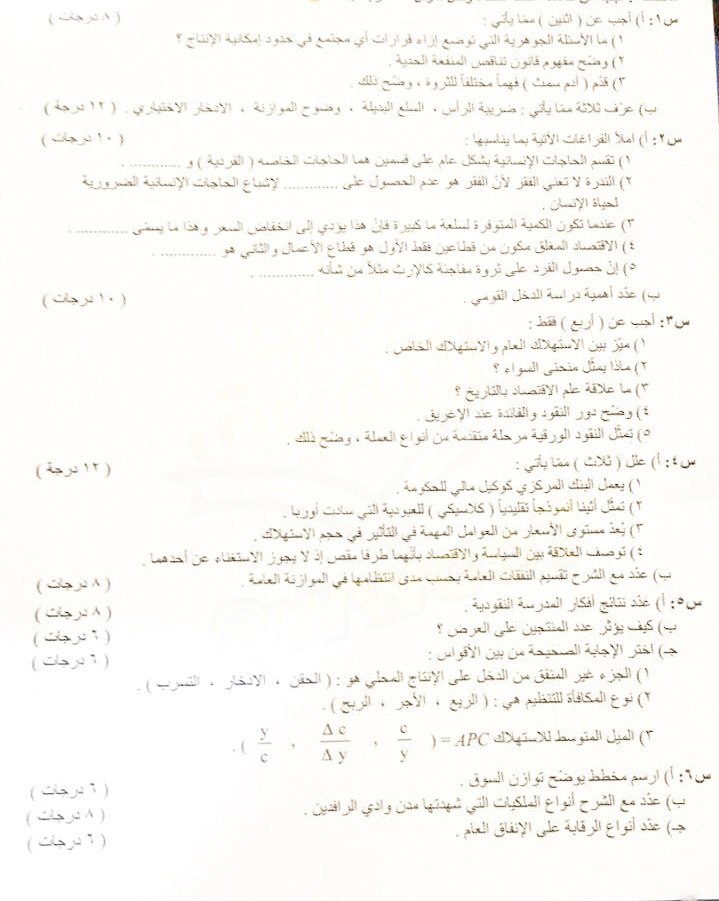 س١: أ) أجب عن ( اثنين ) ممّا يأتي : ( ٨ درجات )
١) ما الأسئلة الجوهرية التي توضع إزاء قرارات أي مجتمع في حدود إمكانية الإنتاج ؟
٢) وضّح مفهوم قانون تناقص المنفعة الحدية .
٣) قدّم ( آدم سمث ) فهماً مختلفاً للثروة ، وضّح ذلك .
ب) عرّف ثلاثة ممّا يأتي : ضريبة الرأس ، السلع البديلة ، وضوح الموازنة ، الادخار الاختياري . ( ١٢ درجة )
س٢: أ) املأ الفراغات الآتية بما يناسبها : ( ١٠ درجات )
١) تقسم الحاجات الإنسانية بشكل عام على قسمين هما الحاجات الخاصه ( الفردية ) و ............ .
٢) الندرة لا تعني الفقر لأنّ الفقر هو عدم الحصول على ............ لإشباع الحاجات الإنسانية الضرورية
لحياة الإنسان .
٣) عندما تكون الكمية المتوفرة لسلعة ما كبيرة فإنّ هذا يؤدي إلى انخفاض السعر وهذا ما يسمّى ............ .
٤) الاقتصاد المغلق مكون من قطاعين فقط الأول هو قطاع الأعمال والثاني هو ............ .
٥) إنّ حصول الفرد على ثروة مفاجئة كالإرث مثلاً من شأنه ............ .
ب) عدّد أهمية دراسة الدخل القومي . ( ١٠ درجات )
س٣: أجب عن ( أربع ) فقط :
١) ميّز بين الاستهلاك العام والاستهلاك الخاص .
٢) ماذا يمثّل منحنى السواء ؟
٣) ما علاقة علم الاقتصاد بالتاريخ ؟
٤) وضّح دور النقود والفائدة عند الإغريق .
٥) تمثّل النقود الورقية مرحلة متقدمة من أنواع العملة ، وضّح ذلك .
س٤: أ) علل ( ثلاث ) ممّا يأتي : ( ١٢ درجة )
١) يعمل البنك المركزي كوكيل مالي للحكومة .
٢) تمثّل أثينا أنموذجاً تقليدياً ( كلاسيكي ) للعبودية التي سادت أوربا .
٣) يُعدّ مستوى الأسعار من العوامل المهمة في التأثير في حجم الاستهلاك .
٤) توصف العلاقة بين السياسة والاقتصاد بأنّهما طرفا مقص إذ لا يجوز الاستغناء عن أحدهما .
ب) عدّد مع الشرح تقسيم النفقات العامة بحسب مدى انتظامها في الموازنة العامة . ( ٨ درجات )
س٥: أ) عدّد نتائج أفكار المدرسة النقودية . ( ٨ درجات )
ب) كيف يؤثر عدد المنتجين على العرض ؟ ( ٦ درجات )
جـ) اختر الإجابة الصحيحة من بين الأقواس : ( ٦ درجات )
١) الجزء غير المنفق من الدخل على الإنتاج المحلي هو : ( الحقن ، الادخار ، التسرب ) .
٢) نوع المكافأة للتنظيم هي : ( الريع ، الأجر ، الربح ) .
٣) الميل المتوسط للاستهلاك APC = ( c/y ، Δc/Δy ، y/c ) .
س٦: أ) ارسم مخطط يوضّح توازن السوق . ( ٦ درجات )
ب) عدّد مع الشرح أنواع الملكيات التي شهدتها مدن وادي الرافدين . ( ٨ درجات )
جـ) عدّد أنواع الرقابة على الإنفاق العام . ( ٦ درجات )